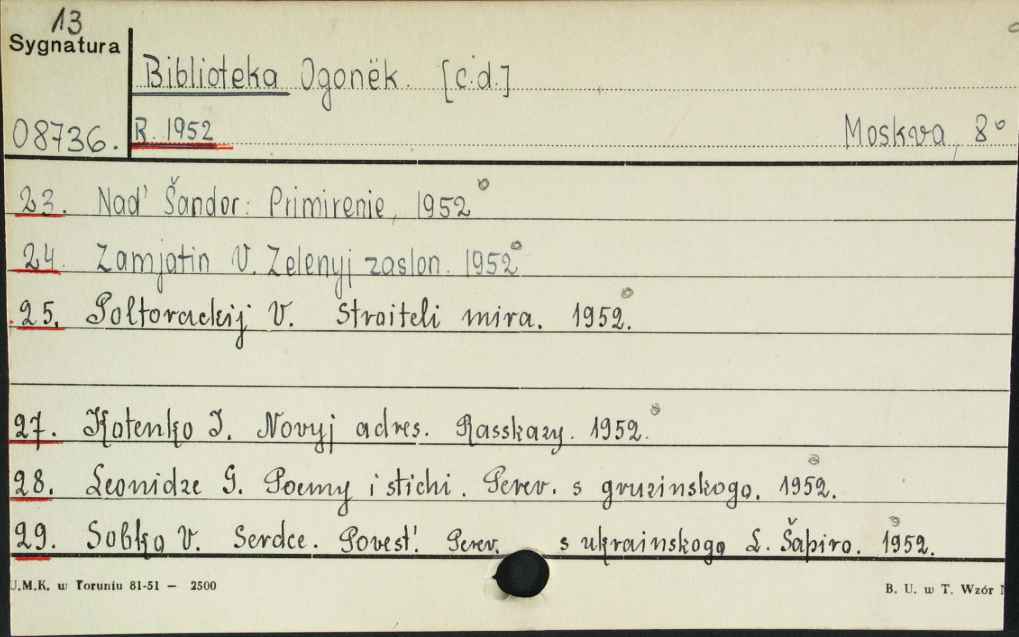 13
Sygnatura
Biblioteka Ogonëk. [c.d.]
08736. R. 1952 Moskva, 8°
23. Nad' Šandor: Primirenie, 1952
24. Zamjatin V. Zelenyj zaslon. 1952
25. Poltorackij V. Stroiteli mira. 1952.
27. Kotenko I. Novyj adres. Rasskazy. 1952.
28. Leonidze G. Poemy i stichi. Perev. s gruzinskogo. 1952.
29. Sobko V. Serdce. Povest'. Perev. s ukrainskogo L. Šapiro. 1952.
U.M.K. w Toruniu 81-51 — 2500 B. U. w T. Wzór